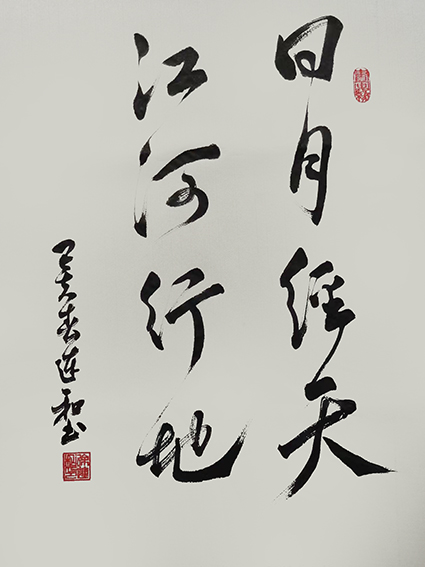 日月经天
江河行地
连和书